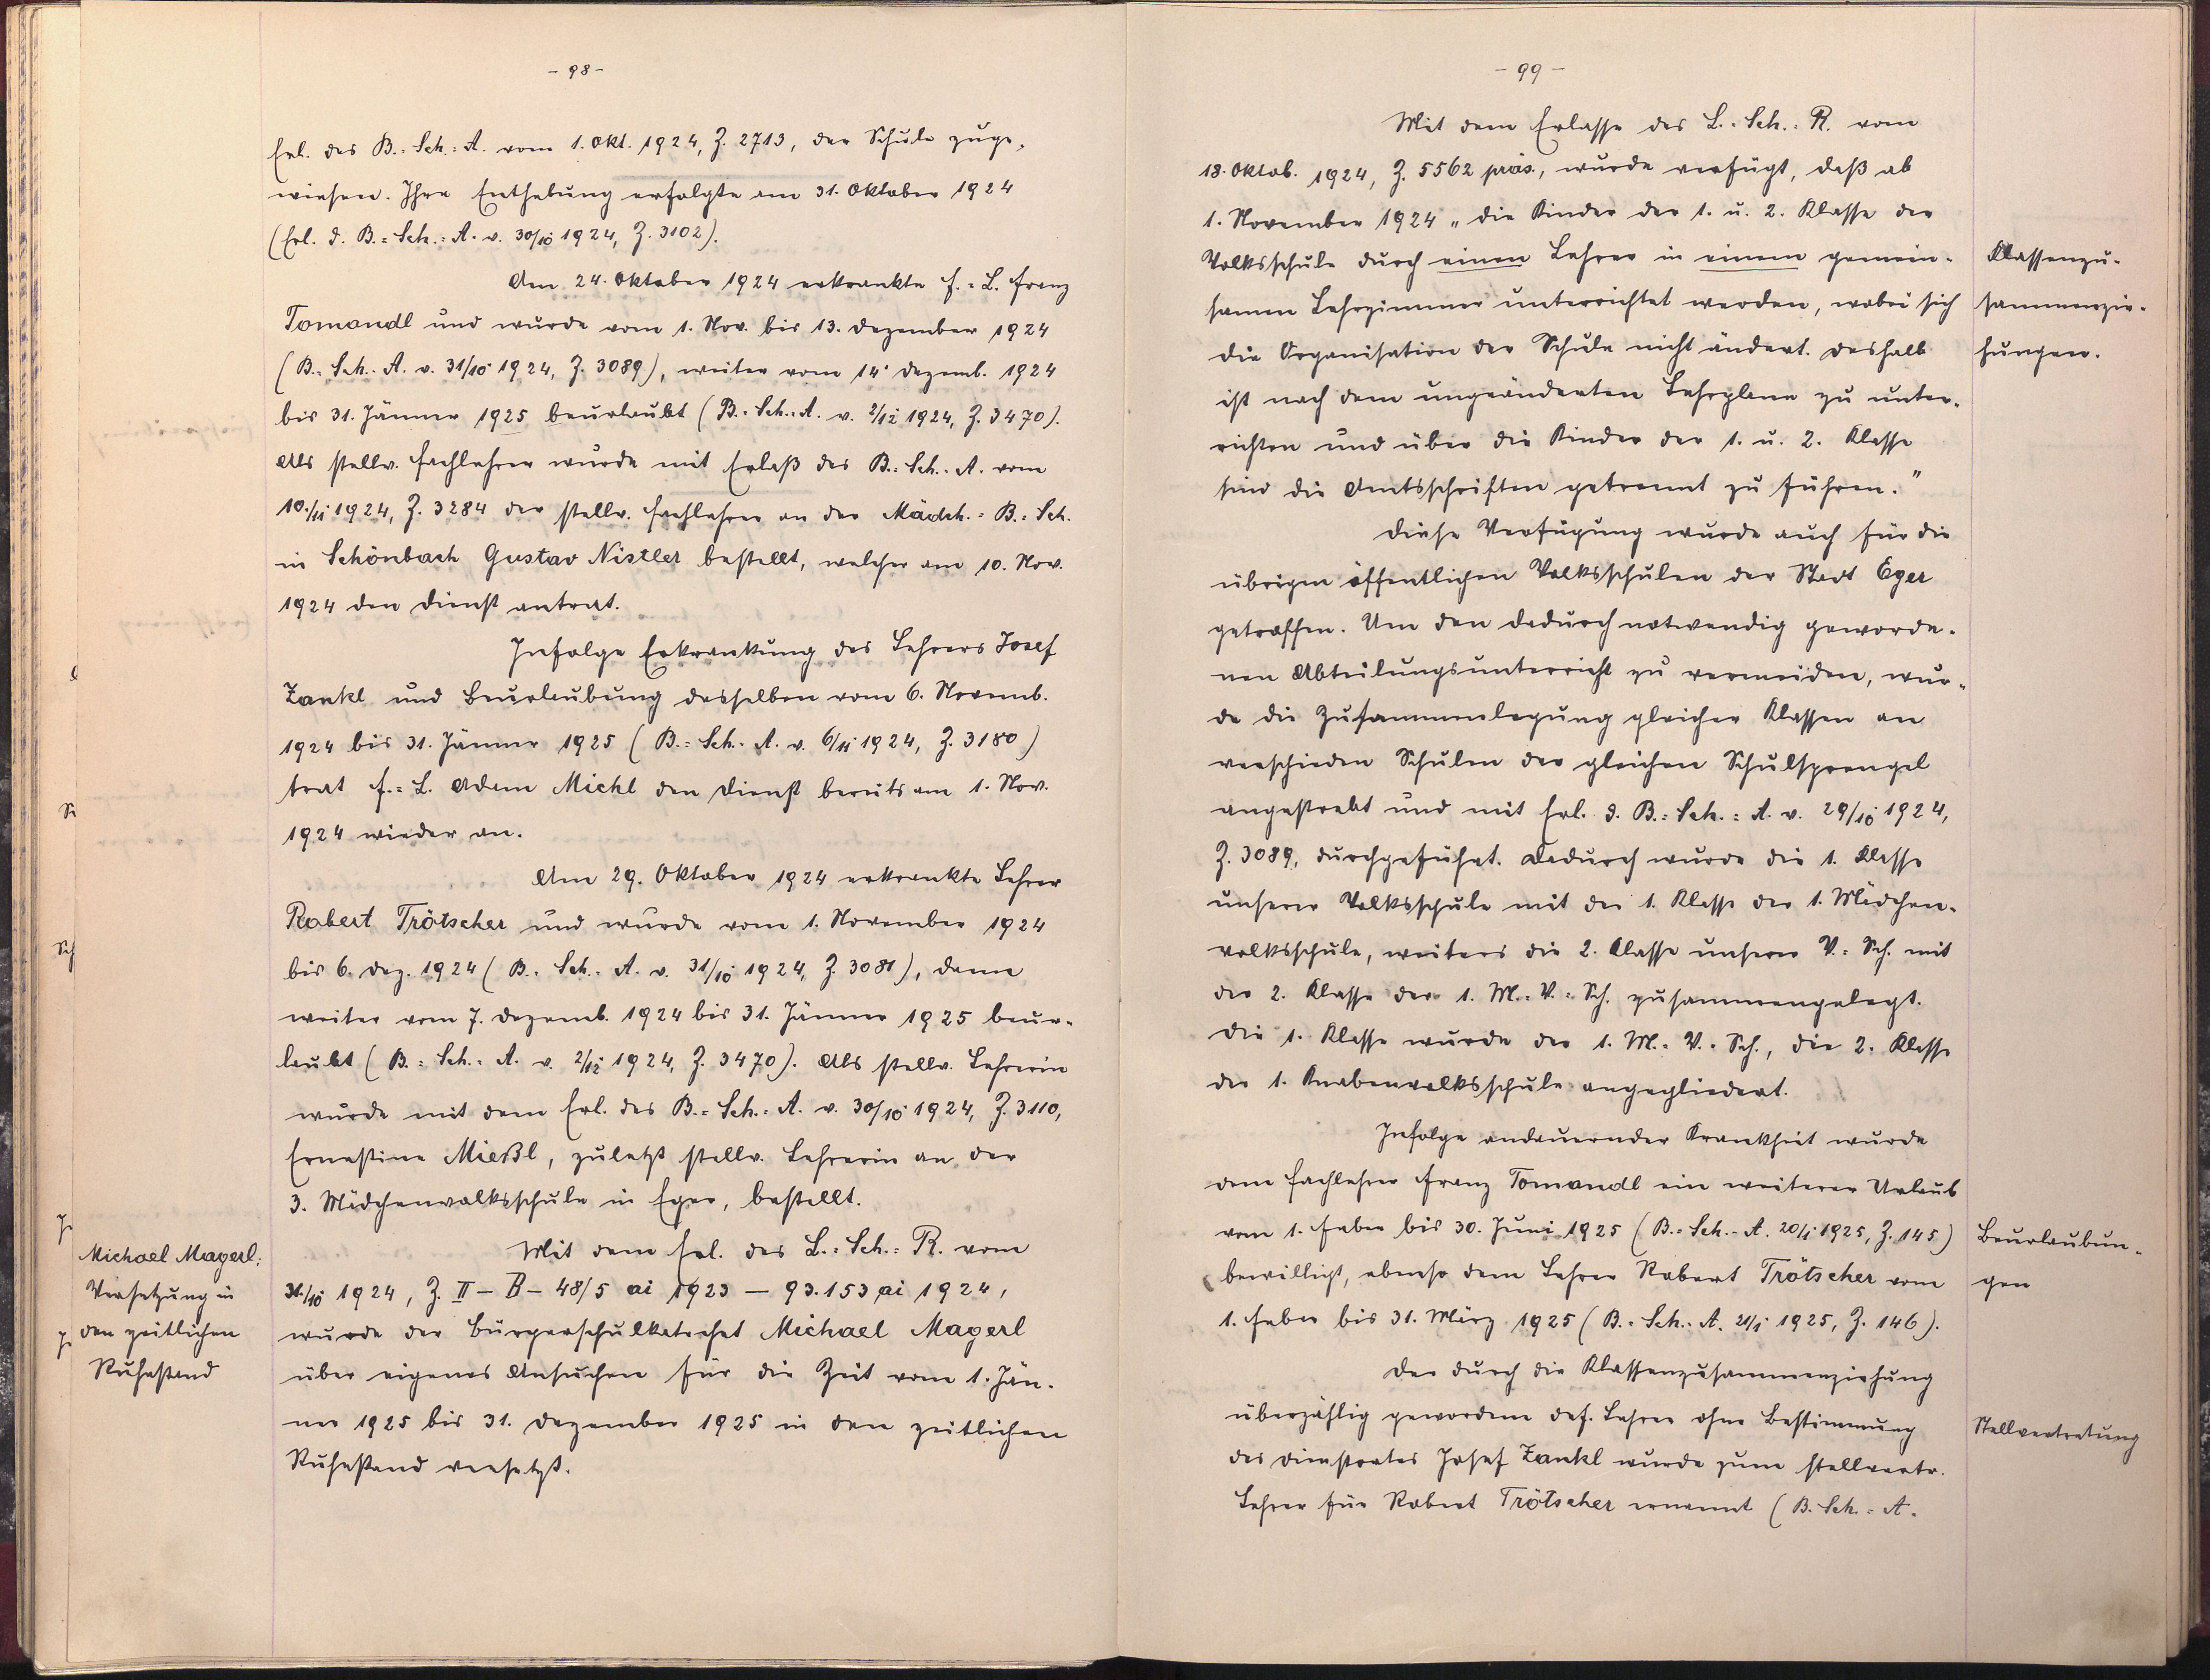 - 98 -
Erl. des B.=Sch.=A. vom 1. Okt. 1924, Z. 2713, der Schule zuge-
wiesen. Ihre Enthebung erfolgte am 31. Oktober 1924
(Erl. d. B.=Sch.=A. v. 30/10 1924, Z. 3102).
Am 24. Oktober 1924 erkrankte F.=L. Franz
Tomandl und wurde vom 1. Nov. bis 13. Dezember 1924
(B.=Sch.=A. v. 31/10 1924, Z. 3089), weiter vom 14. Dezemb. 1924
bis 31. Jänner 1925 beurlaubt (B.=Sch.=A. v. 2/12 1924, Z. 3470).
Als stellv. Fachlehrer wurde mit Erlaß des B.=Sch.=A. vom
10./11 1924, Z. 3284 der stellv. Fachlehrer an der Mädch.=B.=Sch.
in Schönbach Gustav Nistler bestellt, welcher am 10. Nov.
1924 den Dienst antrat.
Infolge Erkrankung des Lehrers Josef
Zankl und Beurlaubung desselben vom 6. Novemb.
1924 bis 31. Jänner 1925 (B.=Sch.=A. v. 6/11 1924, Z. 3180)
trat F.=L. Adam Michl den Dienst bereits am 1. Nov.
1924 wieder an.
Am 29. Oktober 1924 erkrankte Lehrer
Robert Trötscher und wurde vom 1. November 1924
bis 6. Dez. 1924 (B.=Sch.=A. v. 31/10 1924, Z. 3081), dann
weiter vom 7. Dezemb. 1924 bis 31. Jänner 1925 beur-
laubt (B.=Sch.=A. v. 2/12 1924, Z. 3470). Als stellv. Lehrerin
wurde mit dem Erl. des B.=Sch.=A. v. 30/10 1924, Z. 3110,
Ernestine Mießl, zuletzt stellv. Lehrerin an der
3. Mädchenvolksschule in Eger, bestellt.
Mit dem Erl. des L.=Sch.=R. vom
31./10 1924, Z. II - B - 48/5 ai 1923 — 93.153 ai 1924,
wurde der Bürgerschulkatechet Michael Magerl
über eigenes Ansuchen für die Zeit vom 1. Jän-
ner 1925 bis 31. Dezember 1925 in den zeitlichen
Ruhestand versetzt.
Michael Magerl:
Versetzung in
den zeitlichen
Ruhestand
- 99 -
Mit dem Erlasse des L.=Sch.=R. vom
18. Oktob. 1924, Z. 5562 präs., wurde verfügt, daß ab
1. November 1924 „die Kinder der 1. u. 2. Klasse der
Volksschule durch einen Lehrer in einem gemein-
samen Lehrzimmer unterrichtet werden, wobei sich
die Organisation der Schule nicht ändert. Deshalb
ist nach dem ungeänderten Lehrplane zu unter-
richten und über die Kinder der 1. u. 2. Klasse
sind die Amtsschriften getrennt zu führen."
Diese Verfügung wurde auch für die
übrigen öffentlichen Volksschulen der Stadt Eger
getroffen. Um den dadurch notwendig geworde-
nen Abteilungsunterricht zu vermeiden, wur-
de die Zusammenlegung gleicher Klassen an
verschieden Schulen der gleichen Schulsprengel
angestrebt und mit Erl. d. B.=Sch.=A. v. 29/10 1924,
Z. 3089, durchgeführt. Dadurch wurde die 1. Klasse
unserer Volksschule mit der 1. Klasse der 1. Mädchen-
volksschule, weiters die 2. Klasse unserer V.=Sch. mit
der 2. Klasse der 1. M.=V.=Sch. zusammengelegt.
Die 1. Klasse wurde der 1. M.=V.=Sch., die 2. Klasse
der 1. Knabenvolksschule angegliedert.
Infolge andauernder Krankheit wurde
dem Fachlehrer Franz Tomandl ein weiterer Urlaub
vom 1. Feber bis 30. Juni 1925 (B.=Sch.=A. 20/1 1925, Z. 145)
bewilligt, ebenso dem Lehrer Robert Trötscher vom
1. Feber bis 31. März 1925 (B.=Sch.=A. 21/1 1925, Z. 146).
Der durch die Klassenzusammenziehung
überzählig gewordene def. Lehrer ohne Bestimmung
des Dienstortes Josef Zankl wurde zum stellvertr.
Lehrer für Robert Trötscher ernannt (B.=Sch.=A.
Klassenzu-
sammenzie-
hungen.
Beurlaubun-
gen
Stellvertretung